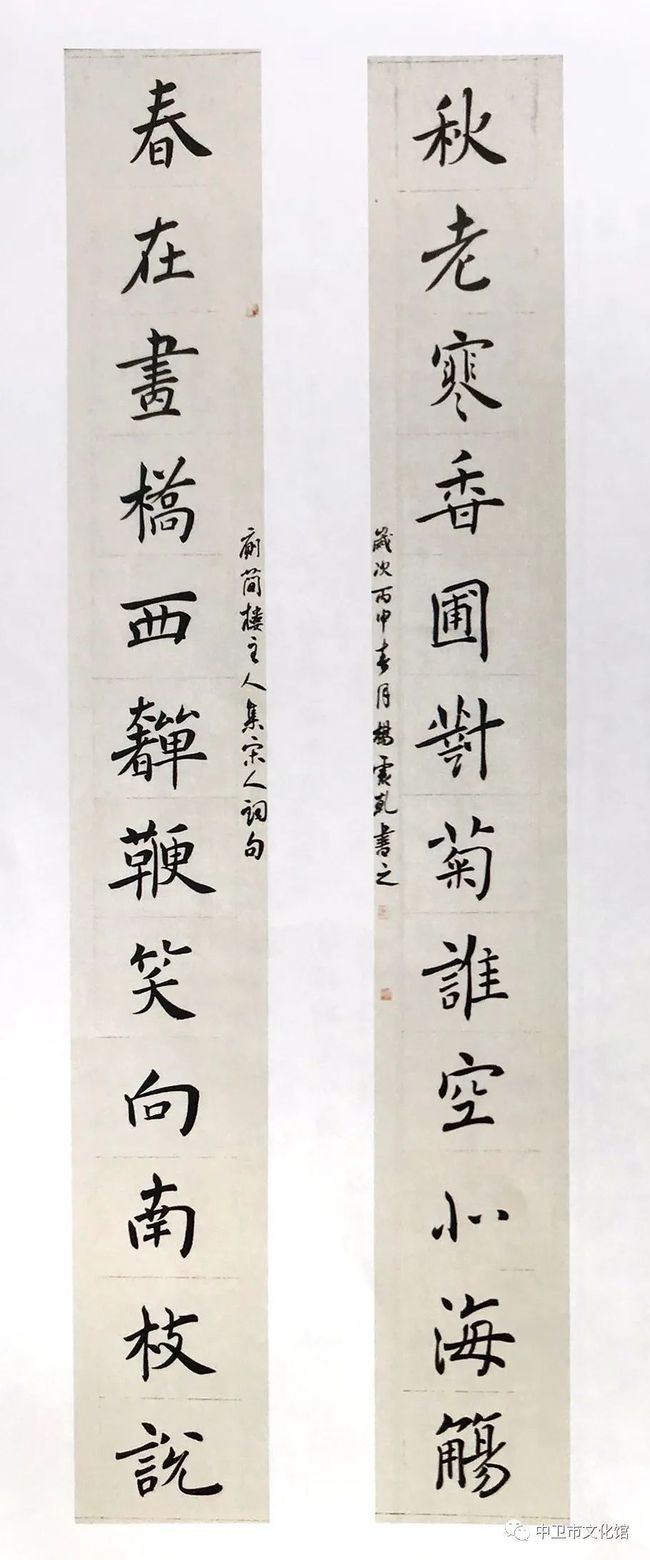 秋老寒香圃對菊誰空北海觴
歲次丙申春月楊書之
春在畫橋西奲鞭笑向南枝說
簡樓主人集宋人詞句
中卫市文化馆